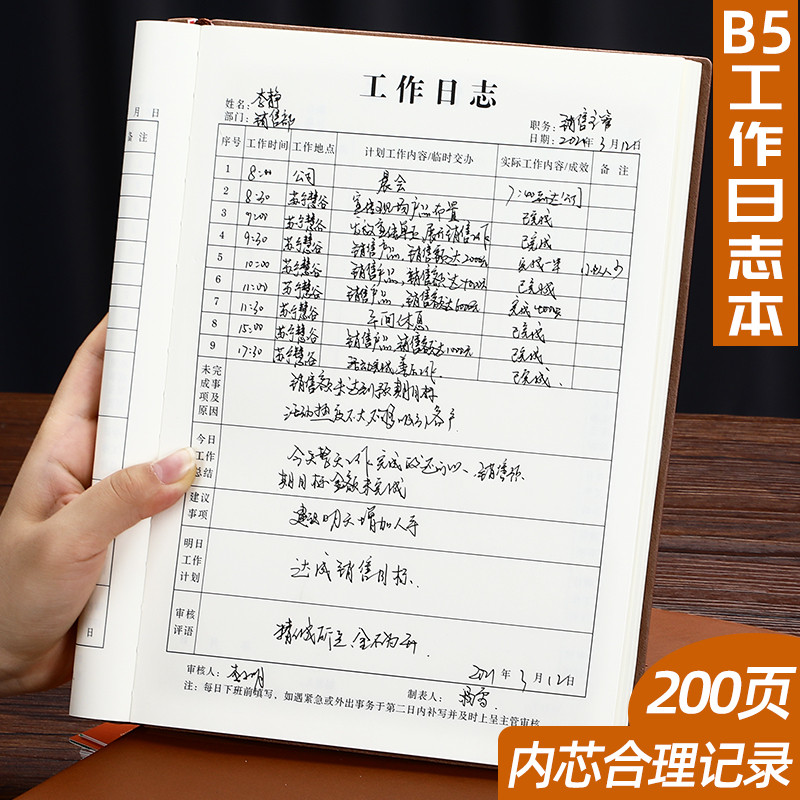 B5工作日志本
工作日志
姓名：李静
部门：销售部
职务：销售主管
日期：2021年3月12日
序号 工作时间 工作地点 计划工作内容/临时交办 实际工作内容/成效 备注
1 8:00 公司 晨会
2 8:30 苏宁慧谷 宣传现场产品布置 已完成
3 9:00 苏宁慧谷 出发宣传单页,展开销售工作 已完成
4 9:30 苏宁慧谷 销售产品,销售额达2000元 完成一半
5 10:00 苏宁慧谷 销售产品,销售额达4000元 已完成
6 11:00 苏宁慧谷 销售产品,销售额达6000元 完成4000元
7 11:30 苏宁慧谷 午间休息 已完成
8 15:00 苏宁慧谷 销售产品,销售额达10000元 已完成
9 17:30 苏宁慧谷 已完成.
未完成事项及原因
销售额未达到预期目标
活动热度不大不够吸引客户.
今日工作总结
今天整天工作完成的还可以、销售预
期目标金额未完成
建议事项
建议明天增加人手
明日工作计划
达成销售目标.
审核评语
审核人：
2021年3月12日
制表人：
注：每日下班前填写，如遇紧急或外出事务于第二日内补写并及时上呈主管审核
月 日
备注
日
200页
内芯合理记录